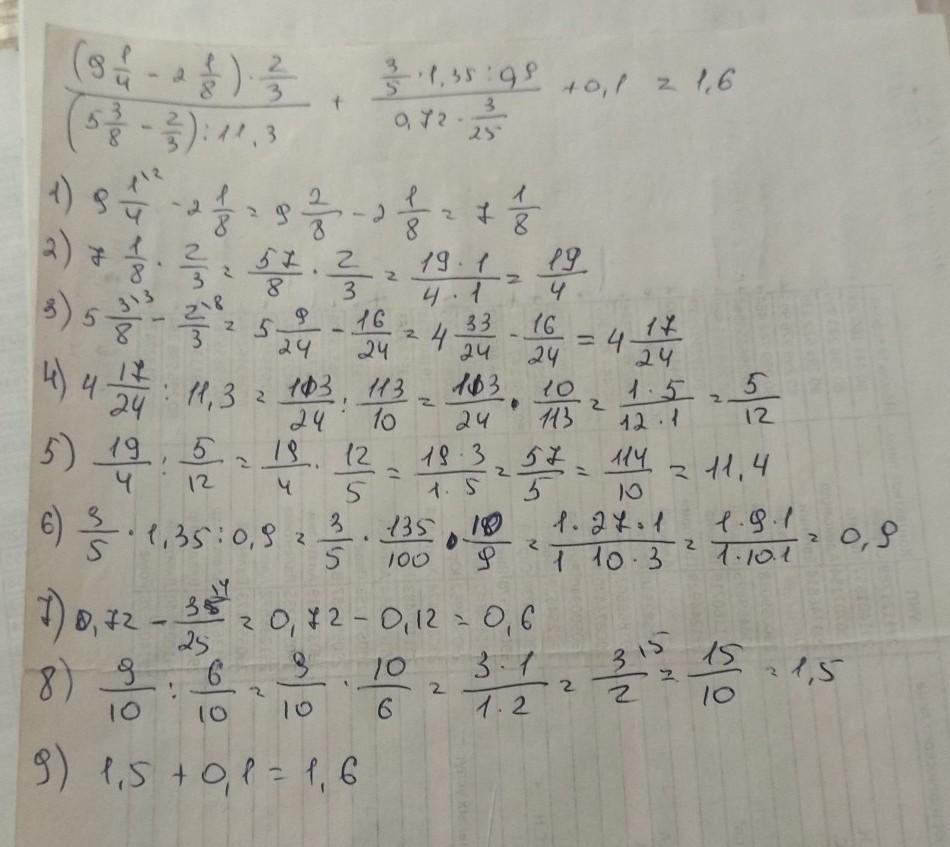 ((9 1/4 - 2 1/8) · 2/3) / ((5 3/8 - 2/3) : 11,3) + (3/5 · 1,35 : 0,9) / (0,72 · 3/25) + 0,1 = 1,6
1) 9 1\2/4 - 2 1/8 = 9 2/8 - 2 1/8 = 7 1/8
2) 7 1/8 · 2/3 = 57/8 · 2/3 = (19 · 1)/(4 · 1) = 19/4
3) 5 3\3/8 - 2\8/3 = 5 9/24 - 16/24 = 4 33/24 - 16/24 = 4 17/24
4) 4 17/24 : 11,3 = 113/24 : 113/10 = 113/24 · 10/113 = (1 · 5)/(12 · 1) = 5/12
5) 19/4 : 5/12 = 19/4 · 12/5 = (19 · 3)/(1 · 5) = 57/5 = 114/10 = 11,4
6) 3/5 · 1,35 : 0,9 = 3/5 · 135/100 · 10/9 = (1 · 27 · 1)/(1 10 · 3) = (1 · 9 · 1)/(1 · 10 · 1) = 0,9
7) 0,72 - 3\4/25 = 0,72 - 0,12 = 0,6
8) 9/10 : 6/10 = 9/10 · 10/6 = (3 · 1)/(1 · 2) = 3\5/2 = 15/10 = 1,5
9) 1,5 + 0,1 = 1,6